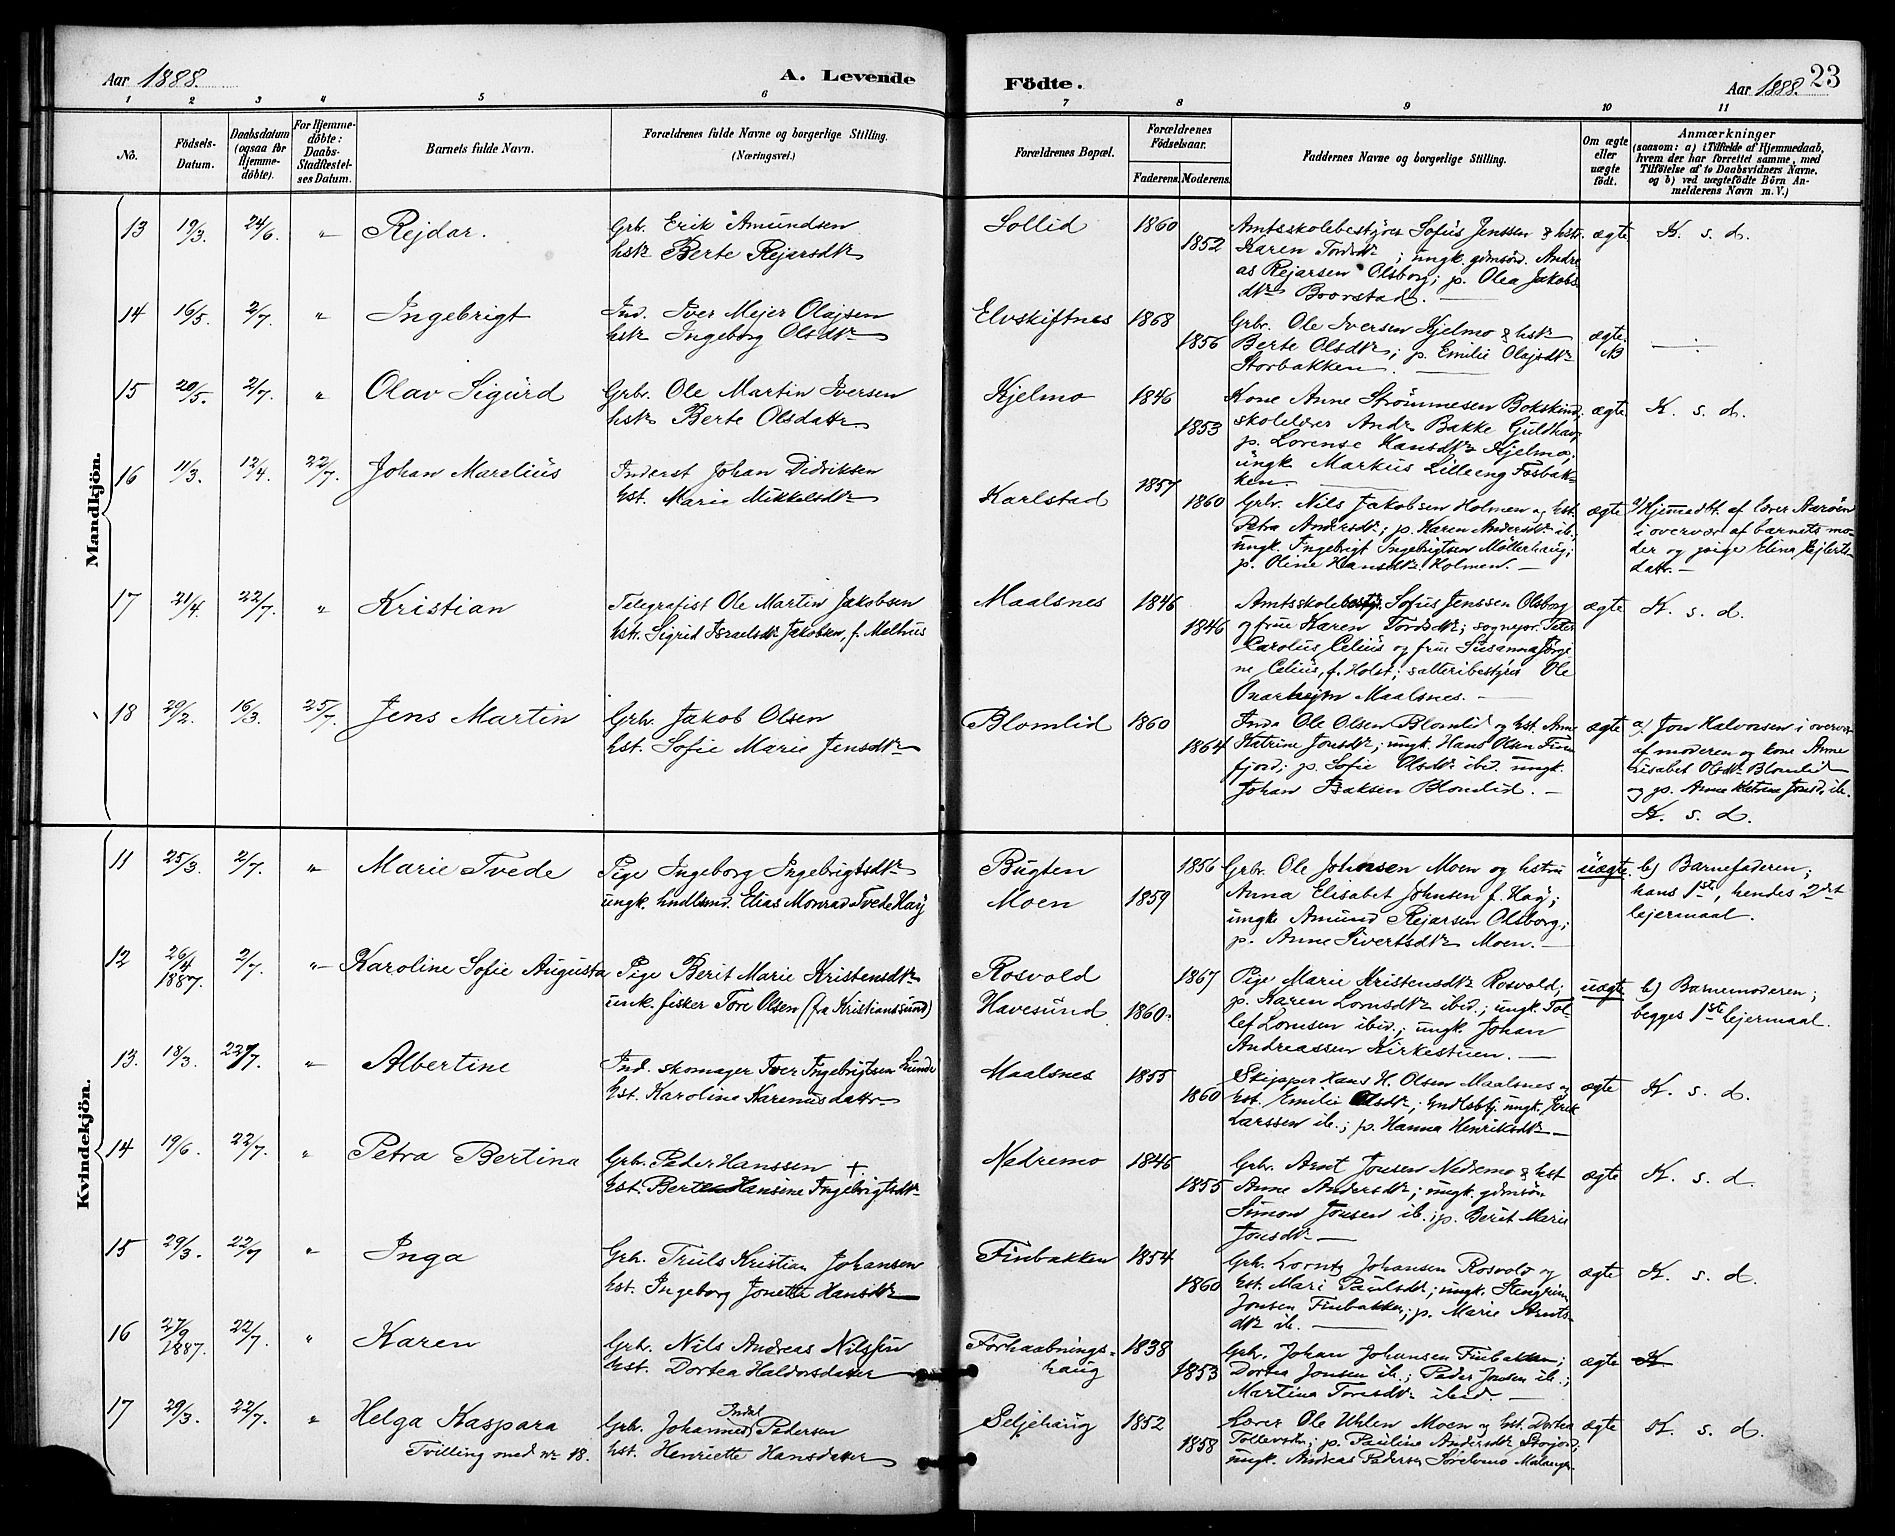 Aar 1888.
A. Levende
Födte.
Aar 1888. 23
1 2 3 4 5 6 7 8 9 10 11
No.
Födsels-
Datum.
Daabsdatum
(ogsaa for
Hjemme-
döbte).
For Hjemme-
döbte:
Daabs-
Stadfæstel-
ses Datum.
Barnets fulde Navn.
Forældrenes fulde Navne og borgerlige Stilling.
(Næringsvei.)
Forældrenes Bopæl.
Forældrenes
Födselsaar.
Faderens. Moderens.
Faddernes Navne og borgerlige Stilling.
Om ægte
eller
uægte
födt.
Anmærkninger
(saasom: a) i Tilfælde af Hjemmedaab,
hvem der har forrettet samme, med
Tilföielse af to Daabsvidners Navne.
og b) ved uægtefödte Börn An-
melderens Navn m. V.)
Mandkjön.
13 19/3. 24/6. " Rejdar. Grb. Erik Amundsen
hstr Berte Rejarsdtr
Sollid 1860 1852
Amtsskolebestyrer Sofus Jenssen & hstr
Karen Tordsdtr; ungk. gdmsön. Andre
as Rejarsen Olsborg; p. Olea Jakobs
dtr Boorstad.
ægte. K. s. d.
14 16/5. 2/7. " Ingebrigt Ind. Iver Mejer Olajsen
hstr Ingeborg Olsdtr
Elvskiftnes 1868 1856
Grbr. Ole Iversen Kjelmo & hstr
Berte Olsdtr; p. Emilie Olajsdtr
Storbakken.
ægte.
15 20/5. 2/7. " Olav Sigurd Grbr. Ole Martin Iversen
hstr Berte Olsdatr
Kjelmo 1846 1853
Kone Anne Strömmesen Bokskind;
skolelærer Andr Bakke Guldhav;
p. Lorense Hansdtr Kjelmo;
ungk. Markus Lilleeng Fosbak-
ken.
ægte K. s. d.
16 11/3. 12/4. 22/7. Johan Marelius Inderst Johan Didriksen
hst. Marie Mikkelsdtr
Karlstad 1857 1860
Grbr. Nils Jakobsen Holmen og hst.
Petra Andersdtr; p. Karen Andersdtr ib.;
ungk. Ingebrigt Ingebrigtsen Möllerhaug;
p. Oline Hansdtr Holmen.
ægte a/ Hjemmedbt. af lærer
i overvær af barnets mo-
der og pige Elina Ejlerts-
datr.
17 21/4. 22/7. " Kristian Telegrafist Ole Martin Jakobsen
hst. Sigrid Israelsdtr Jakobsen, f. Melhus
Maalsnes 1846 1846
Amtsskolebestyr. Sofus Jenssen Olsborg
og frue Karen Tordsdtr; sognepr. Peter
Carolus Celius og frue Susanna Jörgi-
ne Celius, f. Holst; salteribestyrer Ole
Maalsnes.
ægte K. s. d.
18 29/2. 16/3. 25/7. Jens Martin Grbr. Jakob Olsen
hst. Sofie Marie Jensdtr
Blomlid 1860 1864
Inds. Ole Olsen Blomlid og hst. Anne
Katrine Jonsdtr; ungk. Hans Olsen Finn
fjord; p. Sofie Olsdtr ibid. ungk.
Johan Isaksen Blomlid.
ægte a) Jon Halvorsen i overvær
af moderen og kone Anne
Lisabet Olsdtr Blomlid
og p. Anne Katrine Jonsd. ib.
K. s. d.
Kvindekjön.
11 25/3. 2/7. " Marie Tvede Pige Ingeborg Ingebrigtsdtr
ungk. hndlsmd. Elias Monrad Tvede Høij
Bugten
Moen 1859 1856
Grbr. Ole Johnsen Moen og hstru
Anna Elisabet Johnsen f. Høg;
ungk. Amund Rejarsen Olsborg;
p. Anne Sivertsdtr Moen.
uægte. b) Barnefaderen;
hans 1ste, hendes 2det
lejermaal.
12 26/4 1887. 2/7. " Karoline Sofie Augusta Pige Berit Marie Kristensdtr
unk. fisker Tore Olsen (fra Kristianssund)
Rosvold
Havesund 1860. 1867
Pige Marie Kristensdtr Rosvold;
p. Karen Lornsdtr ibid.; ungk. Tol
lef Lornsen ibid.; ungk. Johan
Andreassen Kirkestuen.
uægte b) Barnemoderen;
begges 1ste lejermaal.
13. 18/3. 22/7. " Albertine Ind. skomager Iver Ingebrigtsen Lunde
hst. Karoline Karenusdatr
Maalsnes 1855 1860
Skipper Hans H. Olsen Maalsnes og
hst. Emilie Olsdtr; hndlsbtj. ungk. Erik
Larssen ib.; p. Hanna Henriksdtr
ægte K. s. d.
14 19/6. 22/7. " Petra Bertina Grbr. Peder Hanssen +
hst. Berte Hansine Ingebrigtsdtr
Nedremo 1846 1855
Grbr. Arnt Jonsen Nedremo & hst
Anne Andersdtr; ungk. gdmsön
Simon Jonsen ib.; p. Berit Marie
Jonsdtr
ægte K. s. d.
15 29/3. 22/7 " Inga Grbr. Truls Kristian Johansen
hst. Ingeborg Jonette Hansdtr
Finbakken 1854 1860
Grbr. Lornts Johansen Rosvold og
hst. Mari Paulsdtr; ungk. Stengrim
Jonsen Finbakken; p. Marie Arnts-
dtr ib.
ægte K. s. d.
16 27/9 1887. 22/7. " Karen Grbr. Nils Andreas Nilssen
hst. Dortea Haldorsdatter
Forhaabnings-
haug 1838 1853
Grbr. Johan Johansen Finbakken;
Dortea Jonsen ib.; Peder Jonsen ib.;
Martina Toresdtr ibid.
ægte K
17 29/3. 22/7. " Helga Kaspara
Tvilling med nr 18.
Grbr. Johannes Indal Pedersen
hst. Henriette Hansdatter
Seljehaug 1852 1858
Lærer Ole Uhlen Moen og hst. Dortea
Tollevsdtr; p. Pauline Andersdtr Storjord;
ungk. Andreas Pedersen Sörelvmo Malangen.
ægte K. s. d.